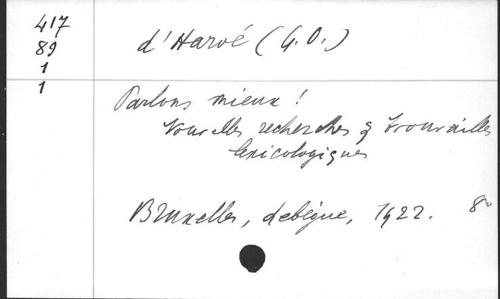 417
89
1
1
d'Harvé (G.O.)
Parlons mieux!
Nouvelles recherches & trouvailles
lexicologiques
Bruxelles, Lebègue, 1922. 8°